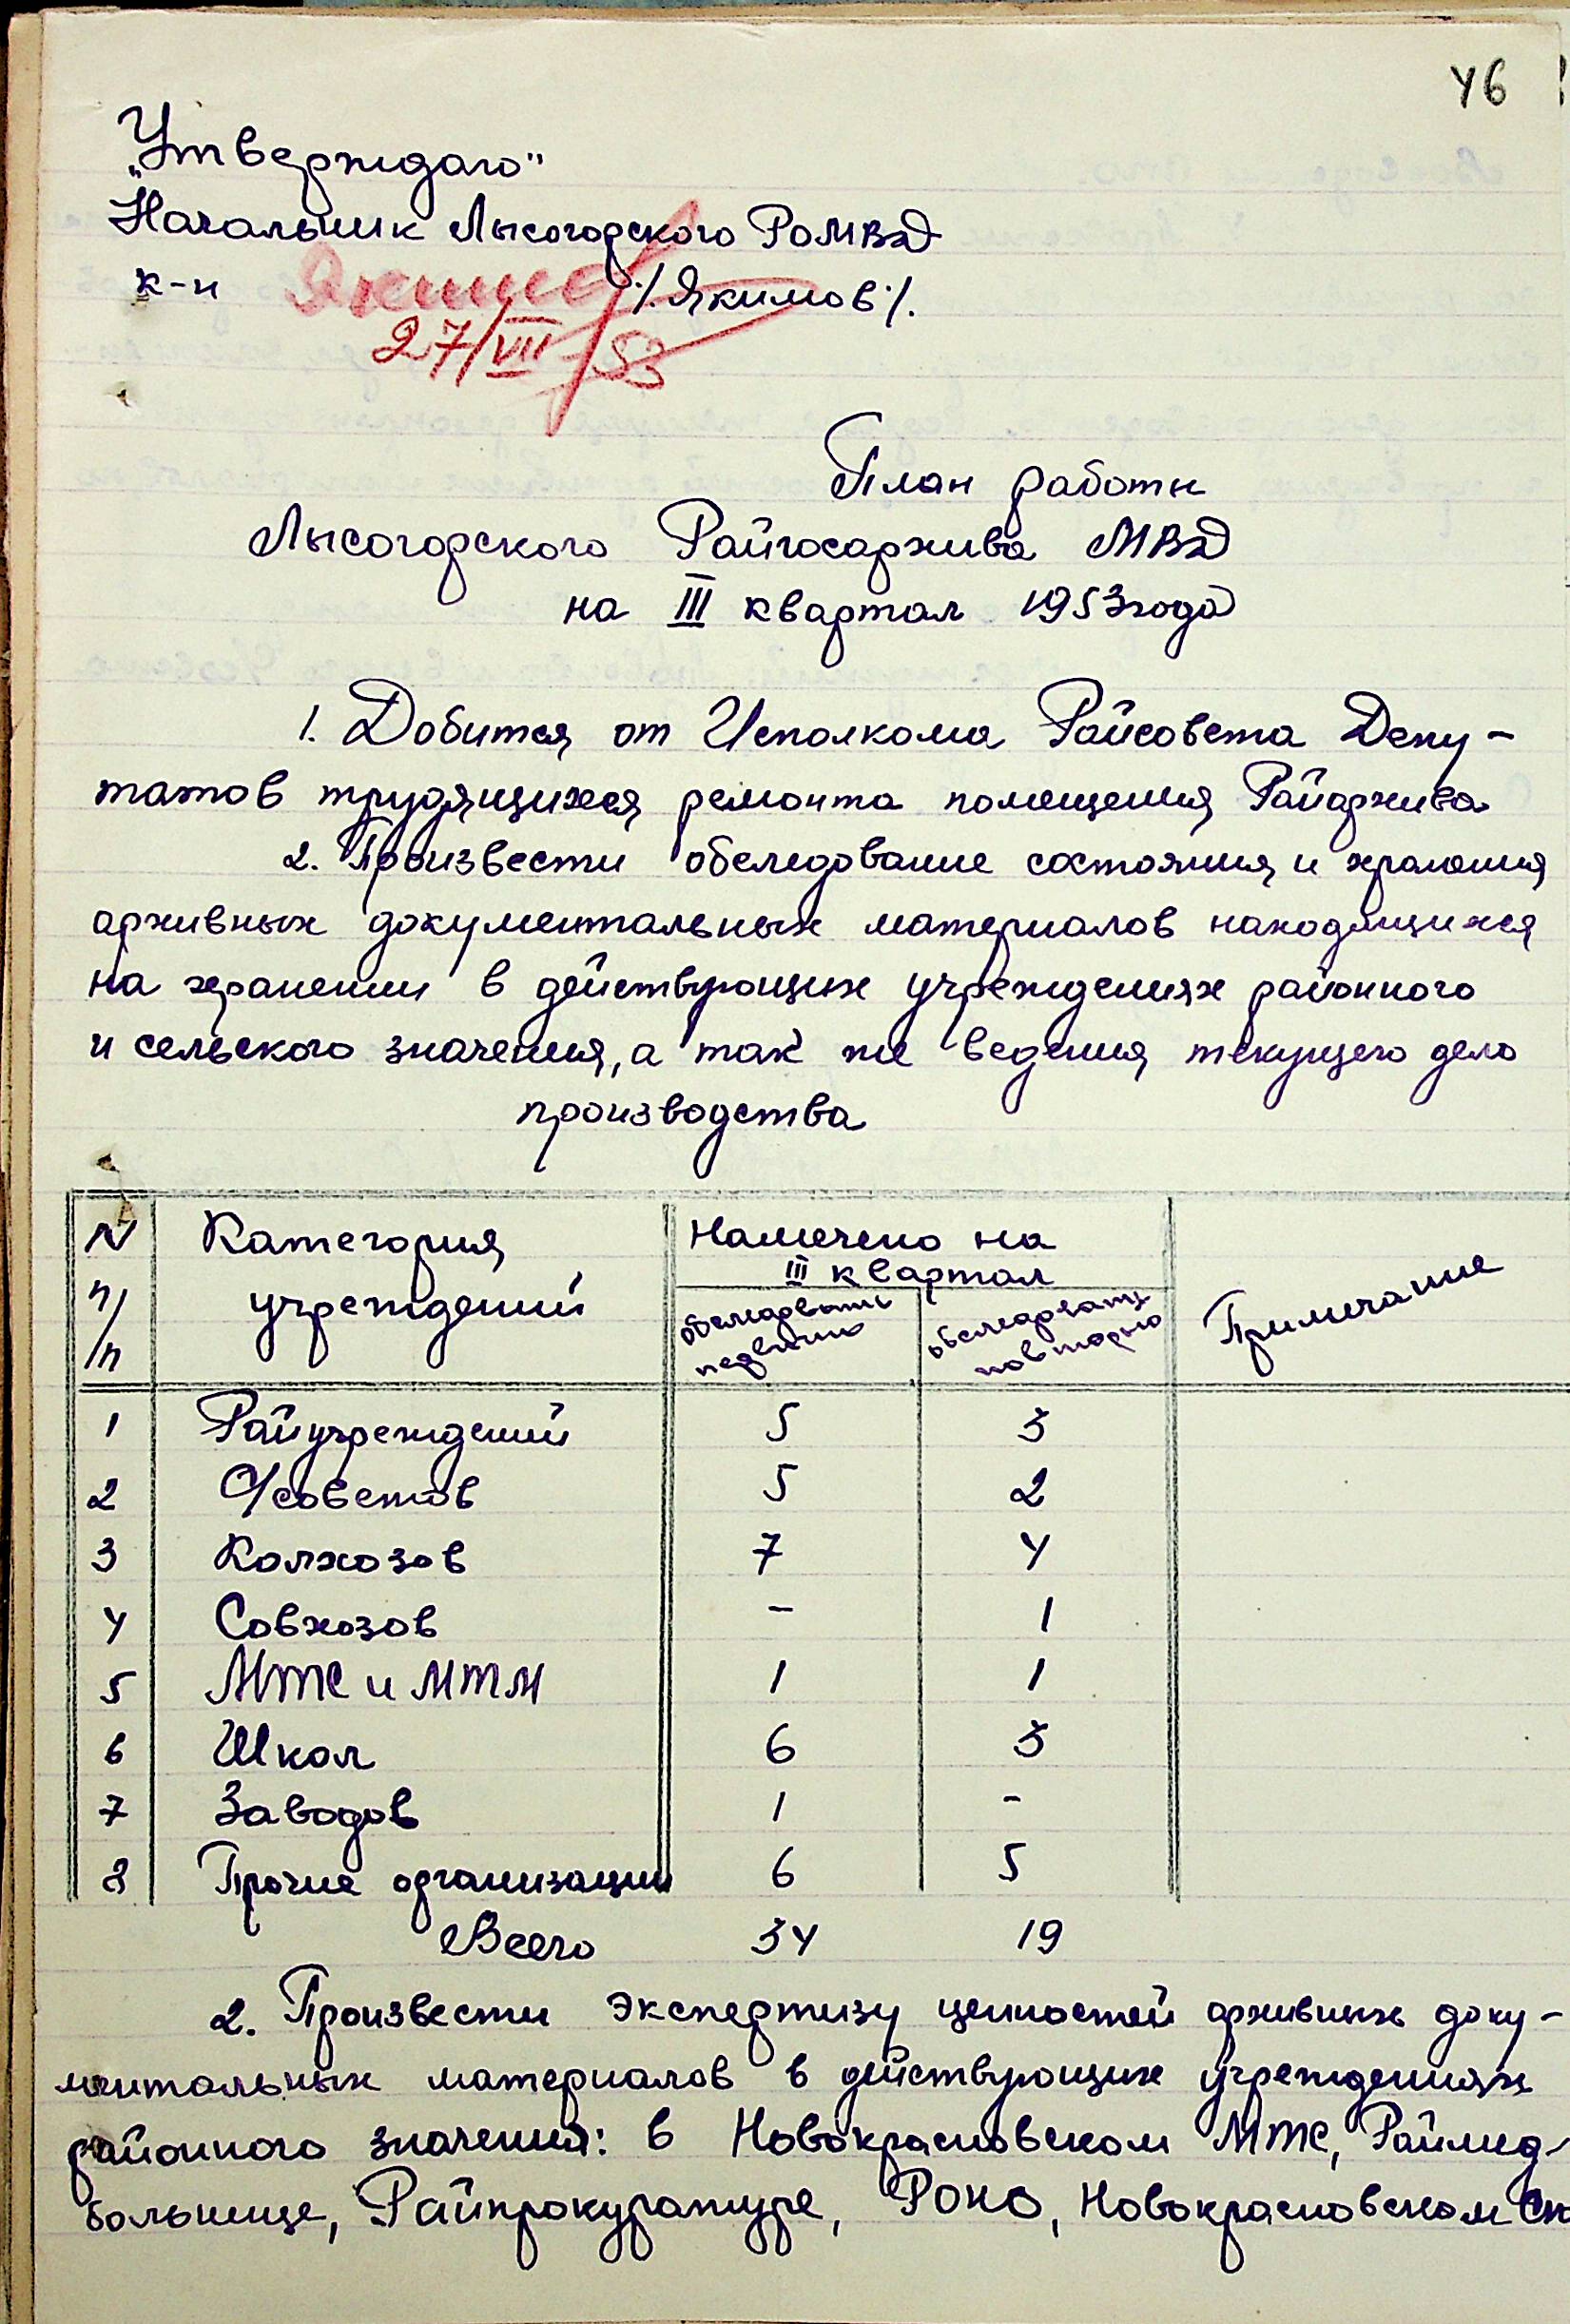 46
„Утверждаю"
Начальник Лысогорского РоМВД
к-н Якимов /. Якимов /.
27/VII-53
План работы
Лысогорского Райгосархива МВД
на III квартал 1953 года
1. Добится от Исполкома Райсовета Депу-
татов трудящихся ремонта помещения Райархива
2. Произвести обследование состояния и хранения
архивных документальных материалов находящихся
на хранении в действующих учреждениях районного
и сельского значения, а так же ведения текущего дело
производства
N п/п Категория учреждений Намечено на III квартал Примечание
обследовать первично обследовать повторно
1 Райучреждений 5 3
2 С/советов 5 2
3 Колхозов 7 4
4 Совхозов - 1
5 МТС и МТМ 1 1
6 Школ 6 3
7 Заводов 1 -
8 Прочие организации 6 5
Всего 34 19
2. Произвести экспертизу ценностей архивных доку-
ментальных материалов в действующих учреждениях
районного значения: в Новокрасновском МТС, Раймед-
больнице, Райпрокуратуре, РОНО, Новокрасновском